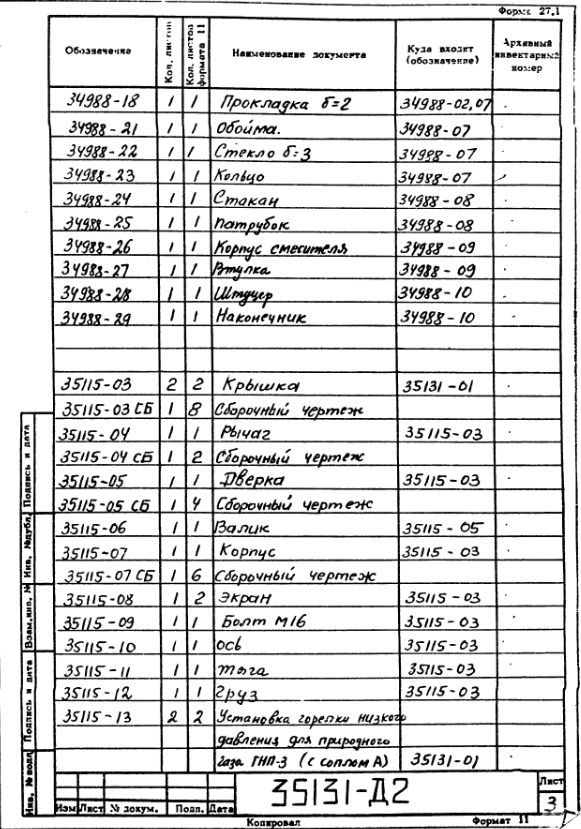 Форма 27.1
Обозначение Кол. листов Кол. листов формата 11 Наименование документа Куда входит (обозначение) Архивный инвентарный номер
34988-18 1 1 Прокладка δ=2 34988-02,07
34988-21 1 1 Обойма. 34988-07
34988-22 1 1 Стекло δ=3 34988-07
34988-23 1 1 Кольцо 34988-07
34988-24 1 1 Стакан 34988-08
34988-25 1 1 Патрубок 34988-08
34988-26 1 1 Корпус смесителя 34988-09
34988-27 1 1 Втулка 34988-09
34988-28 1 1 Штуцер 34988-10
34988-29 1 1 Наконечник 34988-10
35115-03 2 2 Крышка 35131-01
35115-03 СБ 1 8 Сборочный чертеж
35115-04 1 1 Рычаг 35115-03
35115-04 СБ 1 2 Сборочный чертеж
35115-05 1 1 Дверка 35115-03
35115-05 СБ 1 4 Сборочный чертеж
35115-06 1 1 Валик 35115-05
35115-07 1 1 Корпус 35115-03
35115-07 СБ 1 6 Сборочный чертеж
35115-08 1 2 Экран 35115-03
35115-09 1 1 Болт М16 35115-03
35115-10 1 1 Ось 35115-03
35115-11 1 1 Тяга 35115-03
35115-12 1 1 Груз 35115-03
35115-13 2 2 Установка горелки низкого
давления для природного
газа ГНП-3 (с соплом А) 35131-01
Подпись и дата
Инв. №дубл.
Взам.инв. №
Подпись и дата
Инв. №подл
Изм Лист № докум. Подп. Дата
35131-Д2
Лист
3
Копировал Формат 11